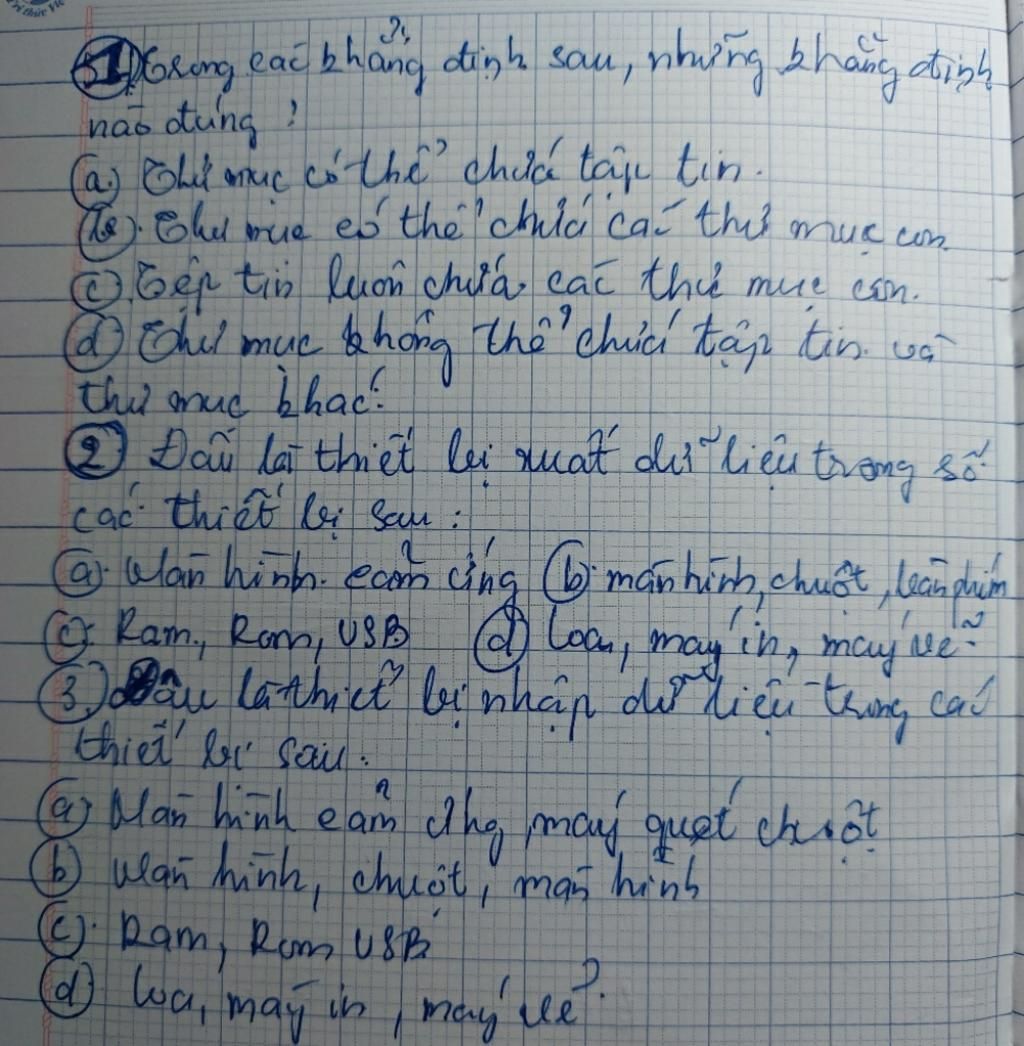 Trí thức Việ
1) Trong các khẳng định sau, những khẳng định
nào đúng ?
a) Thư mục có thể chứa tập tin.
b). Thư mục có thể chứa các thư mục con
c) Tệp tin luôn chứa các thư mục con.
d) Thư mục không thể chứa tập tin và
thư mục khác.
2) Đâu là thiết bị xuất dữ liệu trong số
các thiết bị sau :
a). Màn hình. cảm ứng b). màn hình, chuột, bàn phím
c). Ram, Rom, USB d) loa, máy in, máy vẽ.
3.) Đâu là thiết bị nhập dữ liệu trong các
thiết bị sau.
a) Màn hình cảm ứng, máy quét chuột
b) Màn hình, chuột, màn hình
c). Ram, Rom USB
d) loa, máy in, máy vẽ.